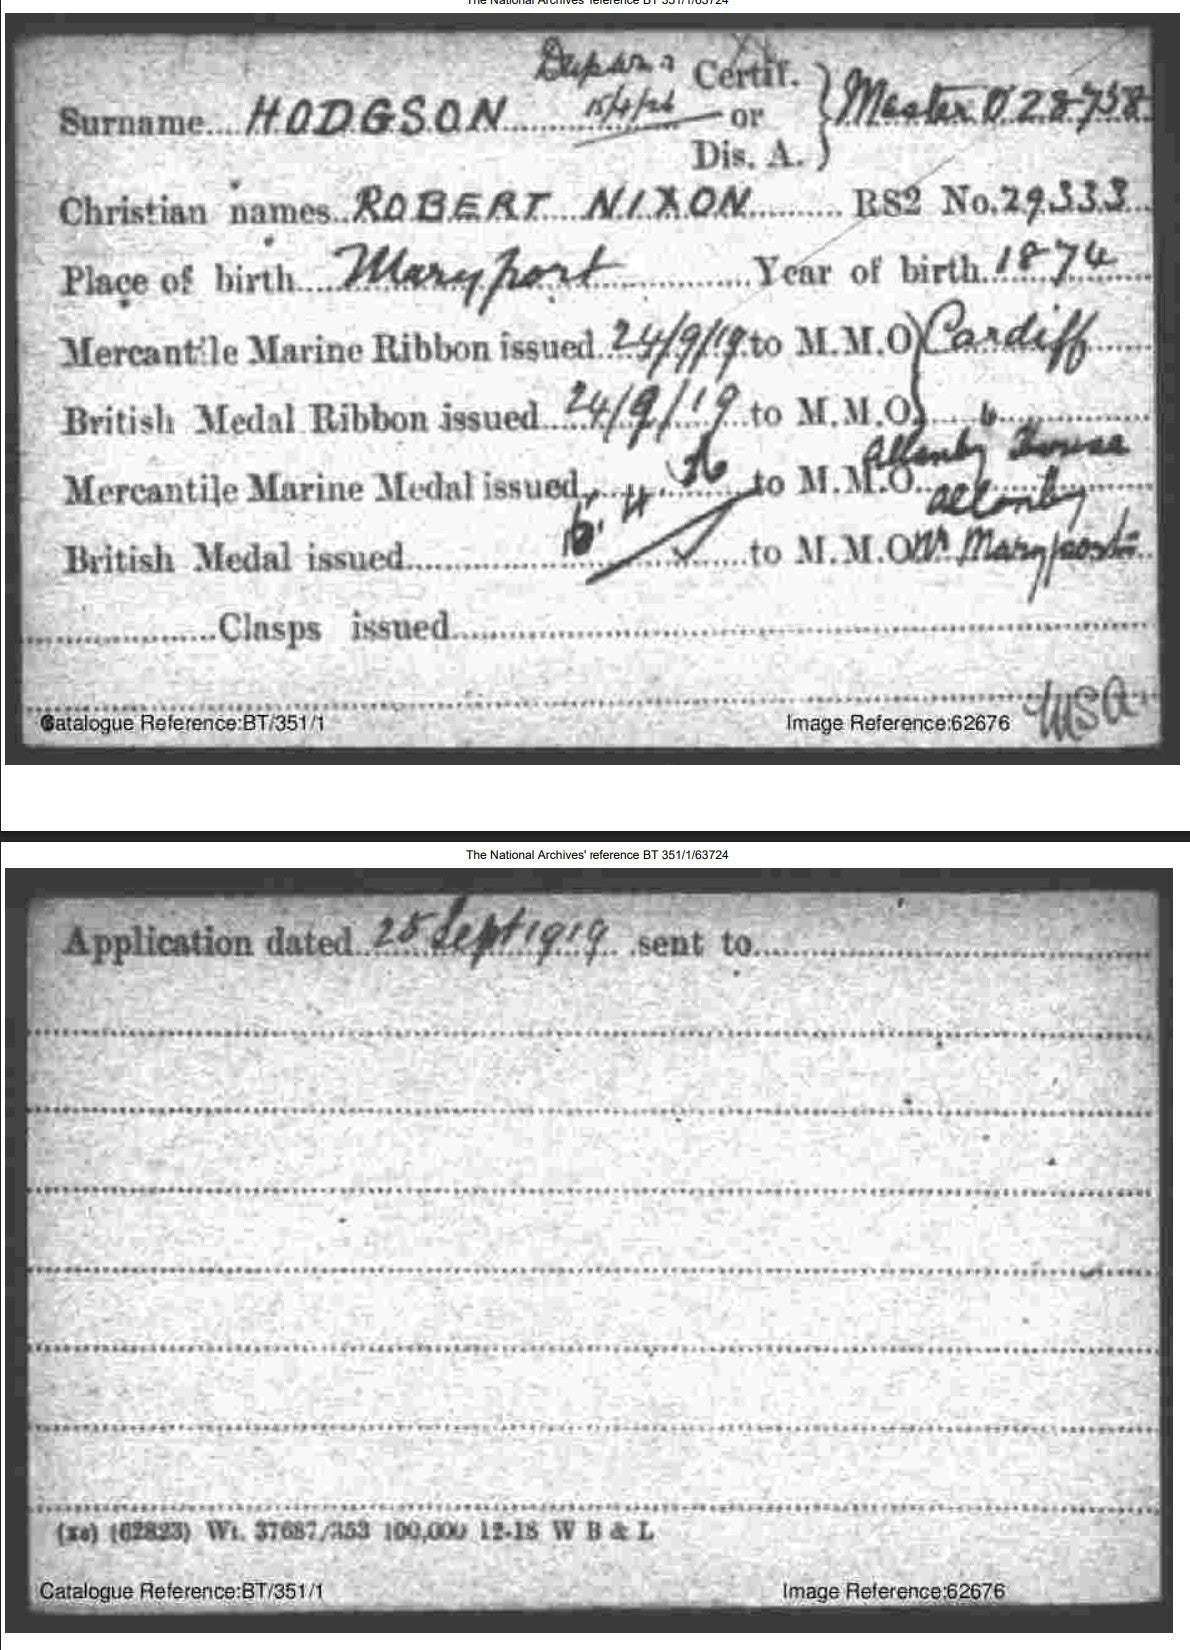 The National Archives' reference BT 351/1/63724
15/4/26
Certif.
Surname....HODGSON.......... or } Master 028758
Dis. A.
Christian names..ROBERT NIXON.......... RS2 No.29333...
Place of birth.....Maryport.............Year of birth.1874....
Mercantile Marine Ribbon issued..24/9/19.to M.M.O) Cardiff......
British Medal Ribbon issued...24/9/19..to M.M.O)
Allonby House
Mercantile Marine Medal issued,..........to M.M.O..
Allonby
British Medal issued..............................to M.M.O Nr Maryport..
................Clasps issued........................................................
USA
Catalogue Reference:BT/351/1 Image Reference:62676
The National Archives' reference BT 351/1/63724
Application dated..25 Sept 1919...sent to...............................
(xe) (62823) Wt. 37687/353 100,000 12-18 W B & L
Catalogue Reference:BT/351/1 Image Reference:62676